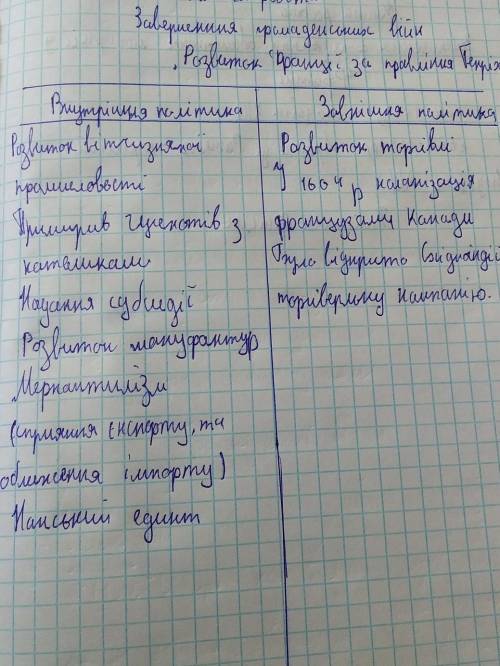 Завершення громадянських війн
"Розвиток Франції за правління Генріха
Внутрішня політика
Зовнішня політика
Розвиток вітчизняної
промисловості
Примирив гугенотів з
католиками
Надання субсидії
Розвиток мануфактур
Меркантилізм
(сприяння експорту, та
обмеження імпорту)
Нанський едикт
Розвиток торгівлі
У 1604 р колонізація
французами Канади
Було відкрито Східноіндій
торгівельну компанію.